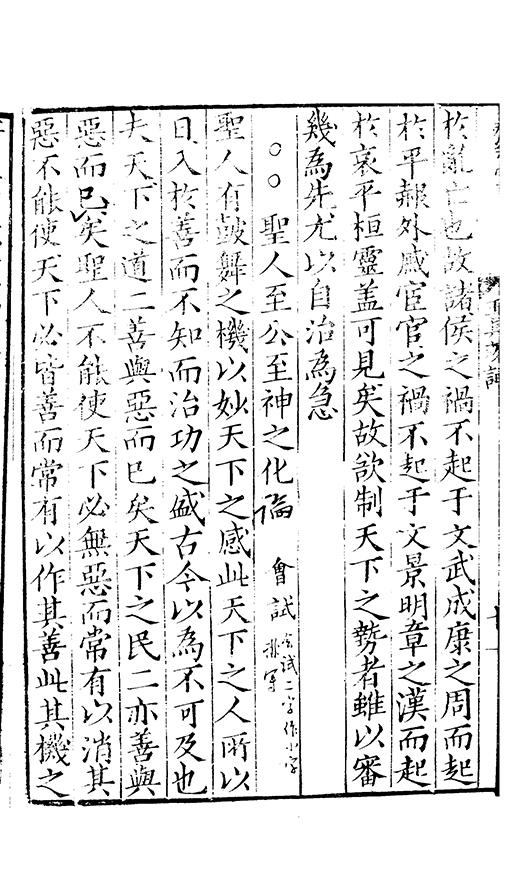 於亂亡也故諸侯之禍不起于文武成康之周而起
於平赧外戚宦官之禍不起于文景明章之漢而起
於哀平桓靈盖可見矣故欲制天下之勢者雖以審
幾為先尤以自治為急
○○聖人至公至神之化論 會試 會試二字作小字排寫
聖人有鼓舞之機以妙天下之感此天下之人所以
日入於善而不知而治功之盛古今以為不可及也
夫天下之道二善與惡而已矣天下之民二亦善與
惡而已矣聖人不能使天下必無惡而常有以消其
惡不能使天下必皆善而常有以作其善此其機之